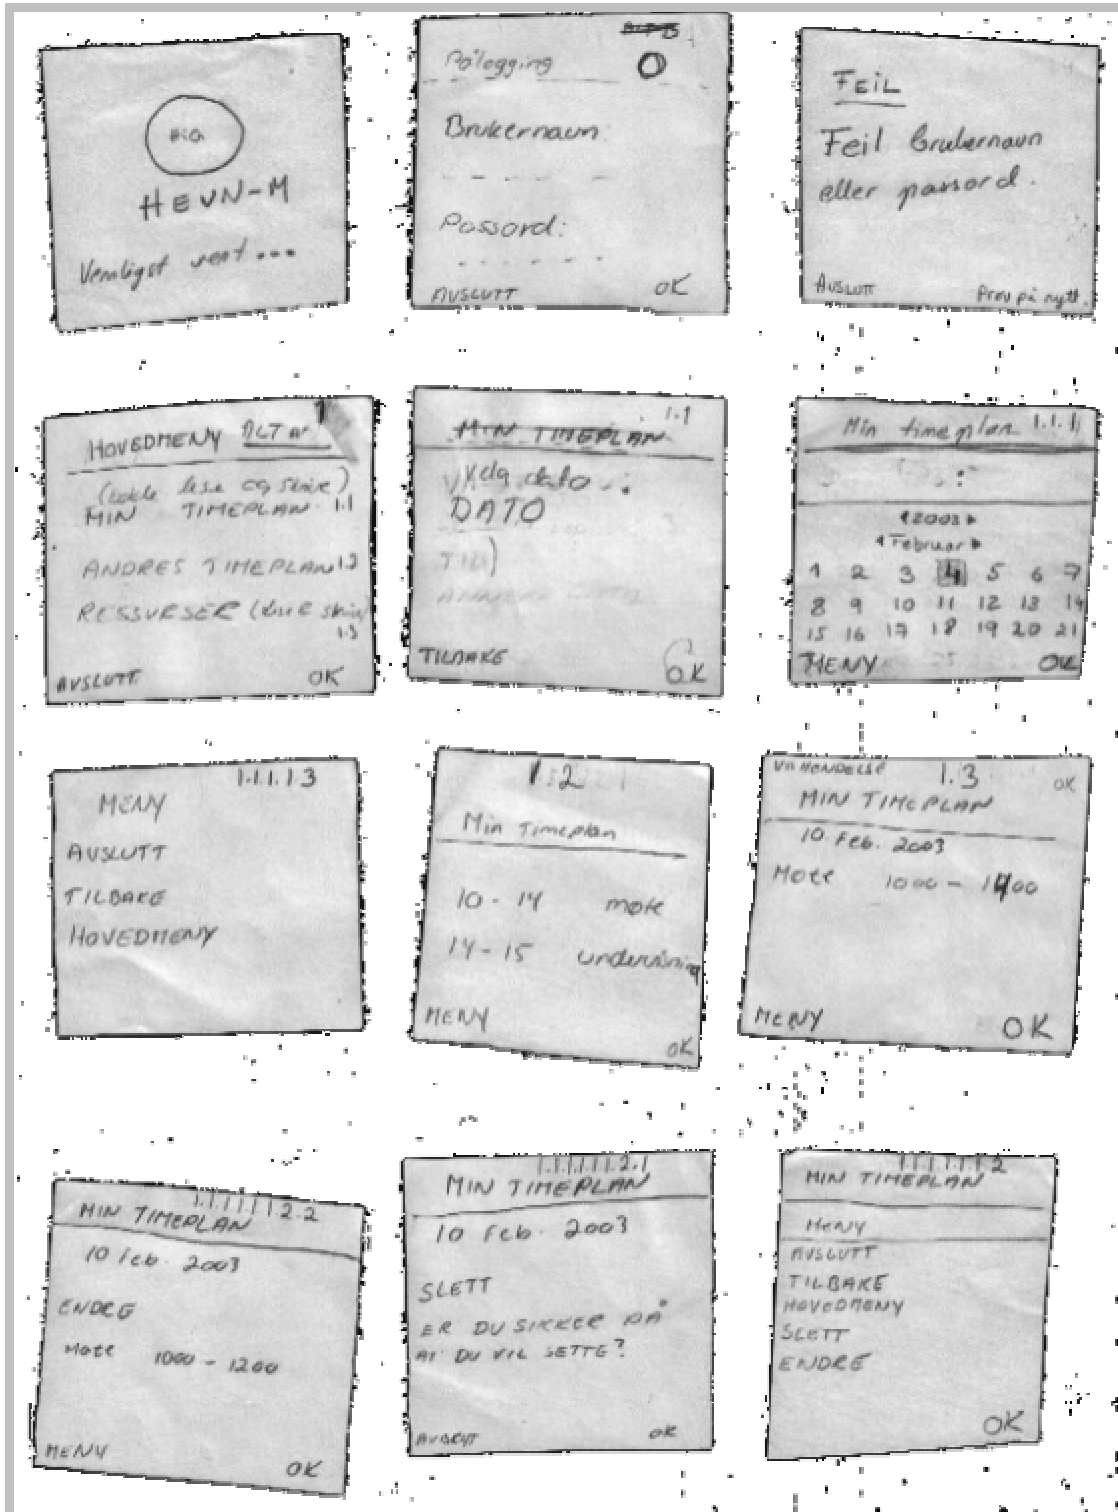 HEVN-M
Vennligst vent...
Pålogging
Brukernavn:
Passord:
AVSLUTT OK
FEIL
Feil brukernavn
eller passord.
AVSLUTT Prøv på nytt.
HOVEDMENY 1
MIN TIMEPLAN 1.1
ANDRES TIMEPLAN 1.2
RESSURSER
1.3
AVSLUTT OK
1.1
MIN TIMEPLAN
Velg dato :
DATO
TILBAKE OK
Min timeplan 1.1.1
2003
Februar
1 2 3 4 5 6 7
8 9 10 11 12 13 14
15 16 17 18 19 20 21
MENY OK
1.1.1.1.3
MENY
AVSLUTT
TILBAKE
HOVEDMENY
1.2
Min Timeplan
10 - 14 møte
14 - 15 undervisning
MENY
OK
1.3 OK
MIN TIMEPLAN
10 Feb. 2003
Møte 1000 - 1400
MENY OK
1.1.1.1.1.2.2
MIN TIMEPLAN
10 Feb. 2003
ENDRE
Møte 1000 - 1200
MENY OK
1.1.1.1.1.1.2.1
MIN TIMEPLAN
10 Feb. 2003
SLETT
ER DU SIKKER PÅ
AT DU VIL SETTE?
AVBRYT OK
1.1.1.1.1.1.2
MIN TIMEPLAN
MENY
AVSLUTT
TILBAKE
HOVEDMENY
SLETT
ENDRE
OK